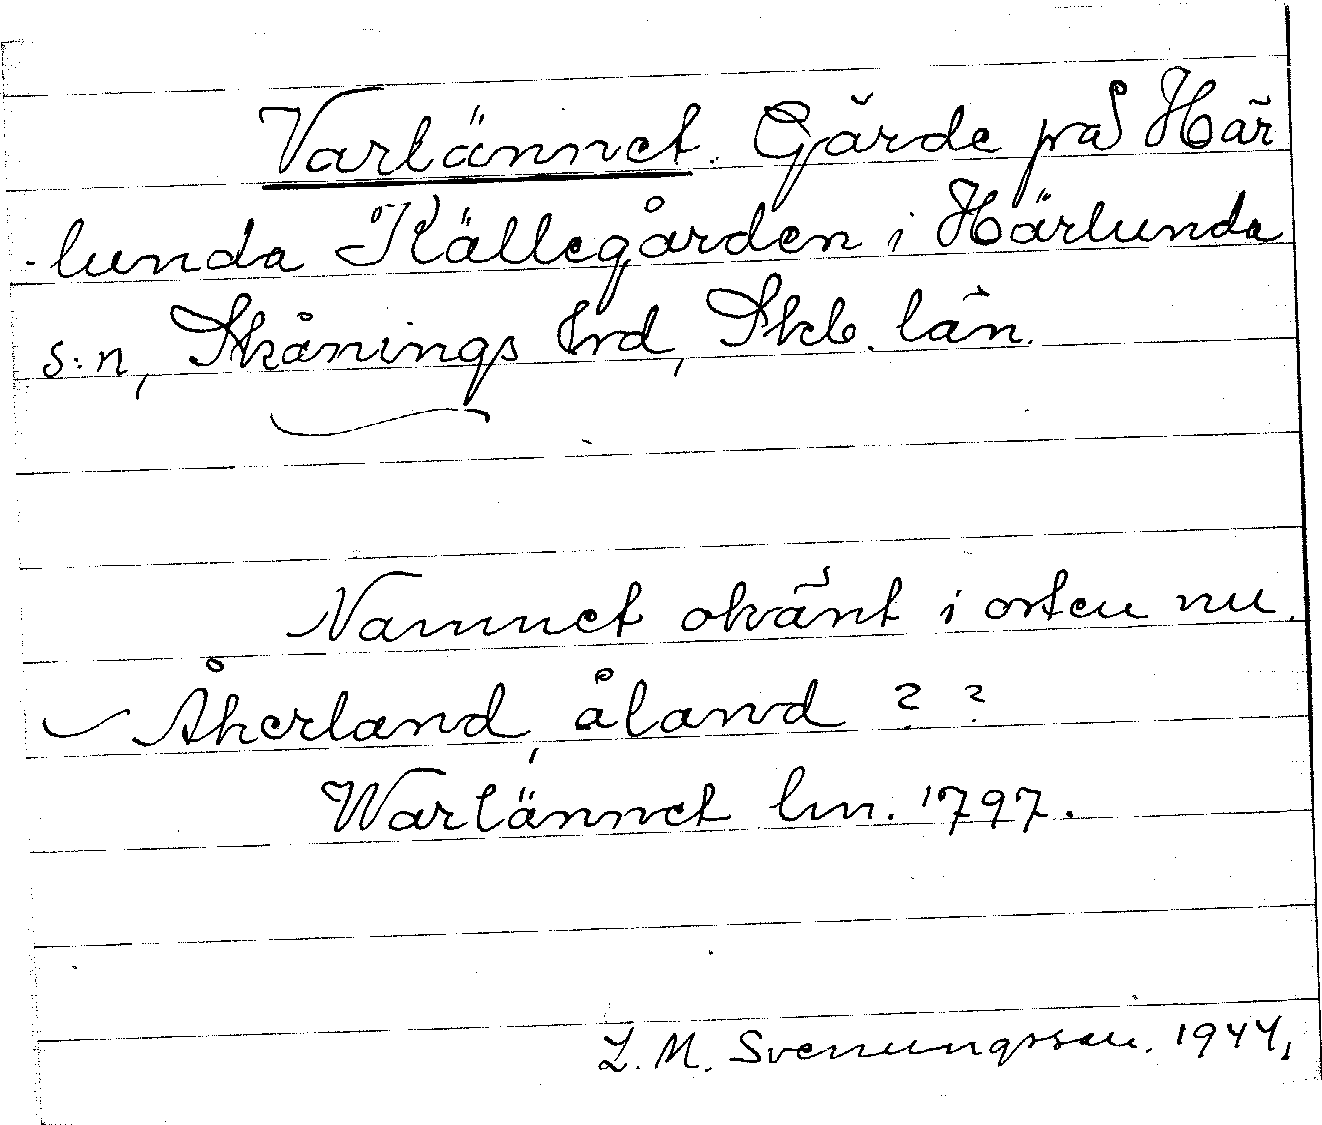 Varlännet. Gärde på Här
-lunda Källegården i Härlunda
s:n, Skånings hrd, Skb. län.
Namnet okänt i orten nu.
Åkerland, åland ? ?
Warlännet lm. 1797.
L. M. Svenungsson. 1944,